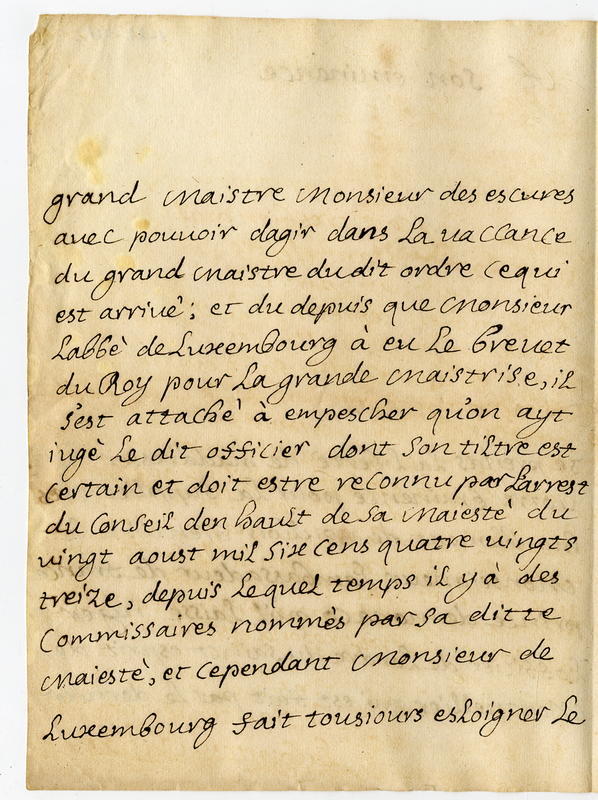 grand maistre monsieur des escures
avec pouvoir dagir dans La vaccance
du grand maistre dudit ordre cequi
est arrivé; et du depuis que monsieur
Labbè de Luxembourg à eu Le brevet
du Roy pour La grande maistrise, il
s'est attaché à empescher qu'on ayt
iugè Le dit officier dont son tiltre est
certain et doit estre reconnu par Larrest
du Conseil den hault de sa maiesté du
vingt aoust mil six cens quatre vingts
treize, depuis Lequel temps il y à des
Commissaires nommès par sa ditte
maiestè, et cependant monsieur de
Luxembourg fait tousiours esLoigner Le